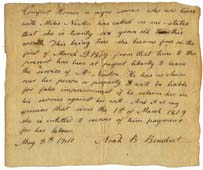 Comfort Homes a negro woman who now lives
with Miles Newton has called on me. States
that she is twenty six years old this
month. This being she became free on the
first of March AD 1809 from that time to the
present has been at perfect liberty to leave
the service of Mr. Newton. He has no claim
over her person or property & will be liable
for false imprisonment if he retains her in
his service against her will. And it is my
opinion that since the 1st of March 1809
she is entitled to recover of him payment
for her labour.
May 3th 1811 Noah B Benedict